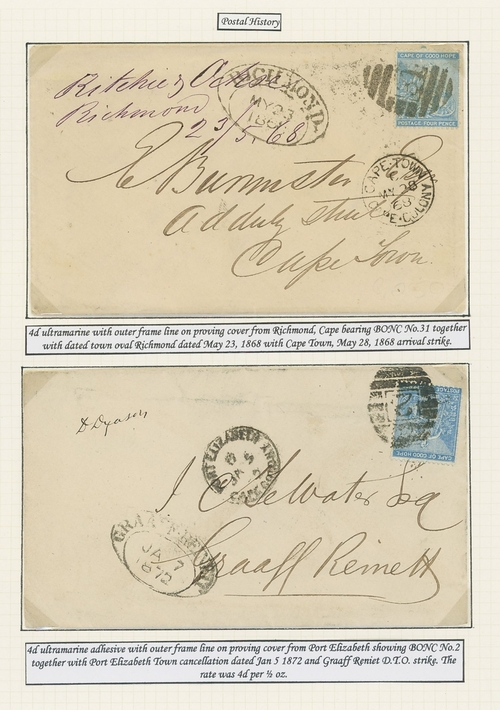 Postal History
Ritchie & 
Richmond
23/5/68
RICHMOND.
MY 23
CAPE OF GOOD HOPE
POSTAGE FOUR PENCE
E Burmister
Adderly street
Cape Town.
CAPE TOWN
MY 28
68
CAPE COLONY
4d ultramarine with outer frame line on proving cover from Richmond, Cape bearing BONC No.31 together
with dated town oval Richmond dated May 23, 1868 with Cape Town, May 28, 1868 arrival strike.
2
POSTAGE
CAPE OF GOOD HOPE
PORT ELIZABETH
JA
Esq
Graaff Reinett
GRAAFF-REINET
JA 7
1872
4d ultramarine adhesive with outer frame line on proving cover from Port Elizabeth showing BONC No.2
together with Port Elizabeth Town cancellation dated Jan 5 1872 and Graaff Reniet D.T.O. strike. The
rate was 4d per ½ oz.